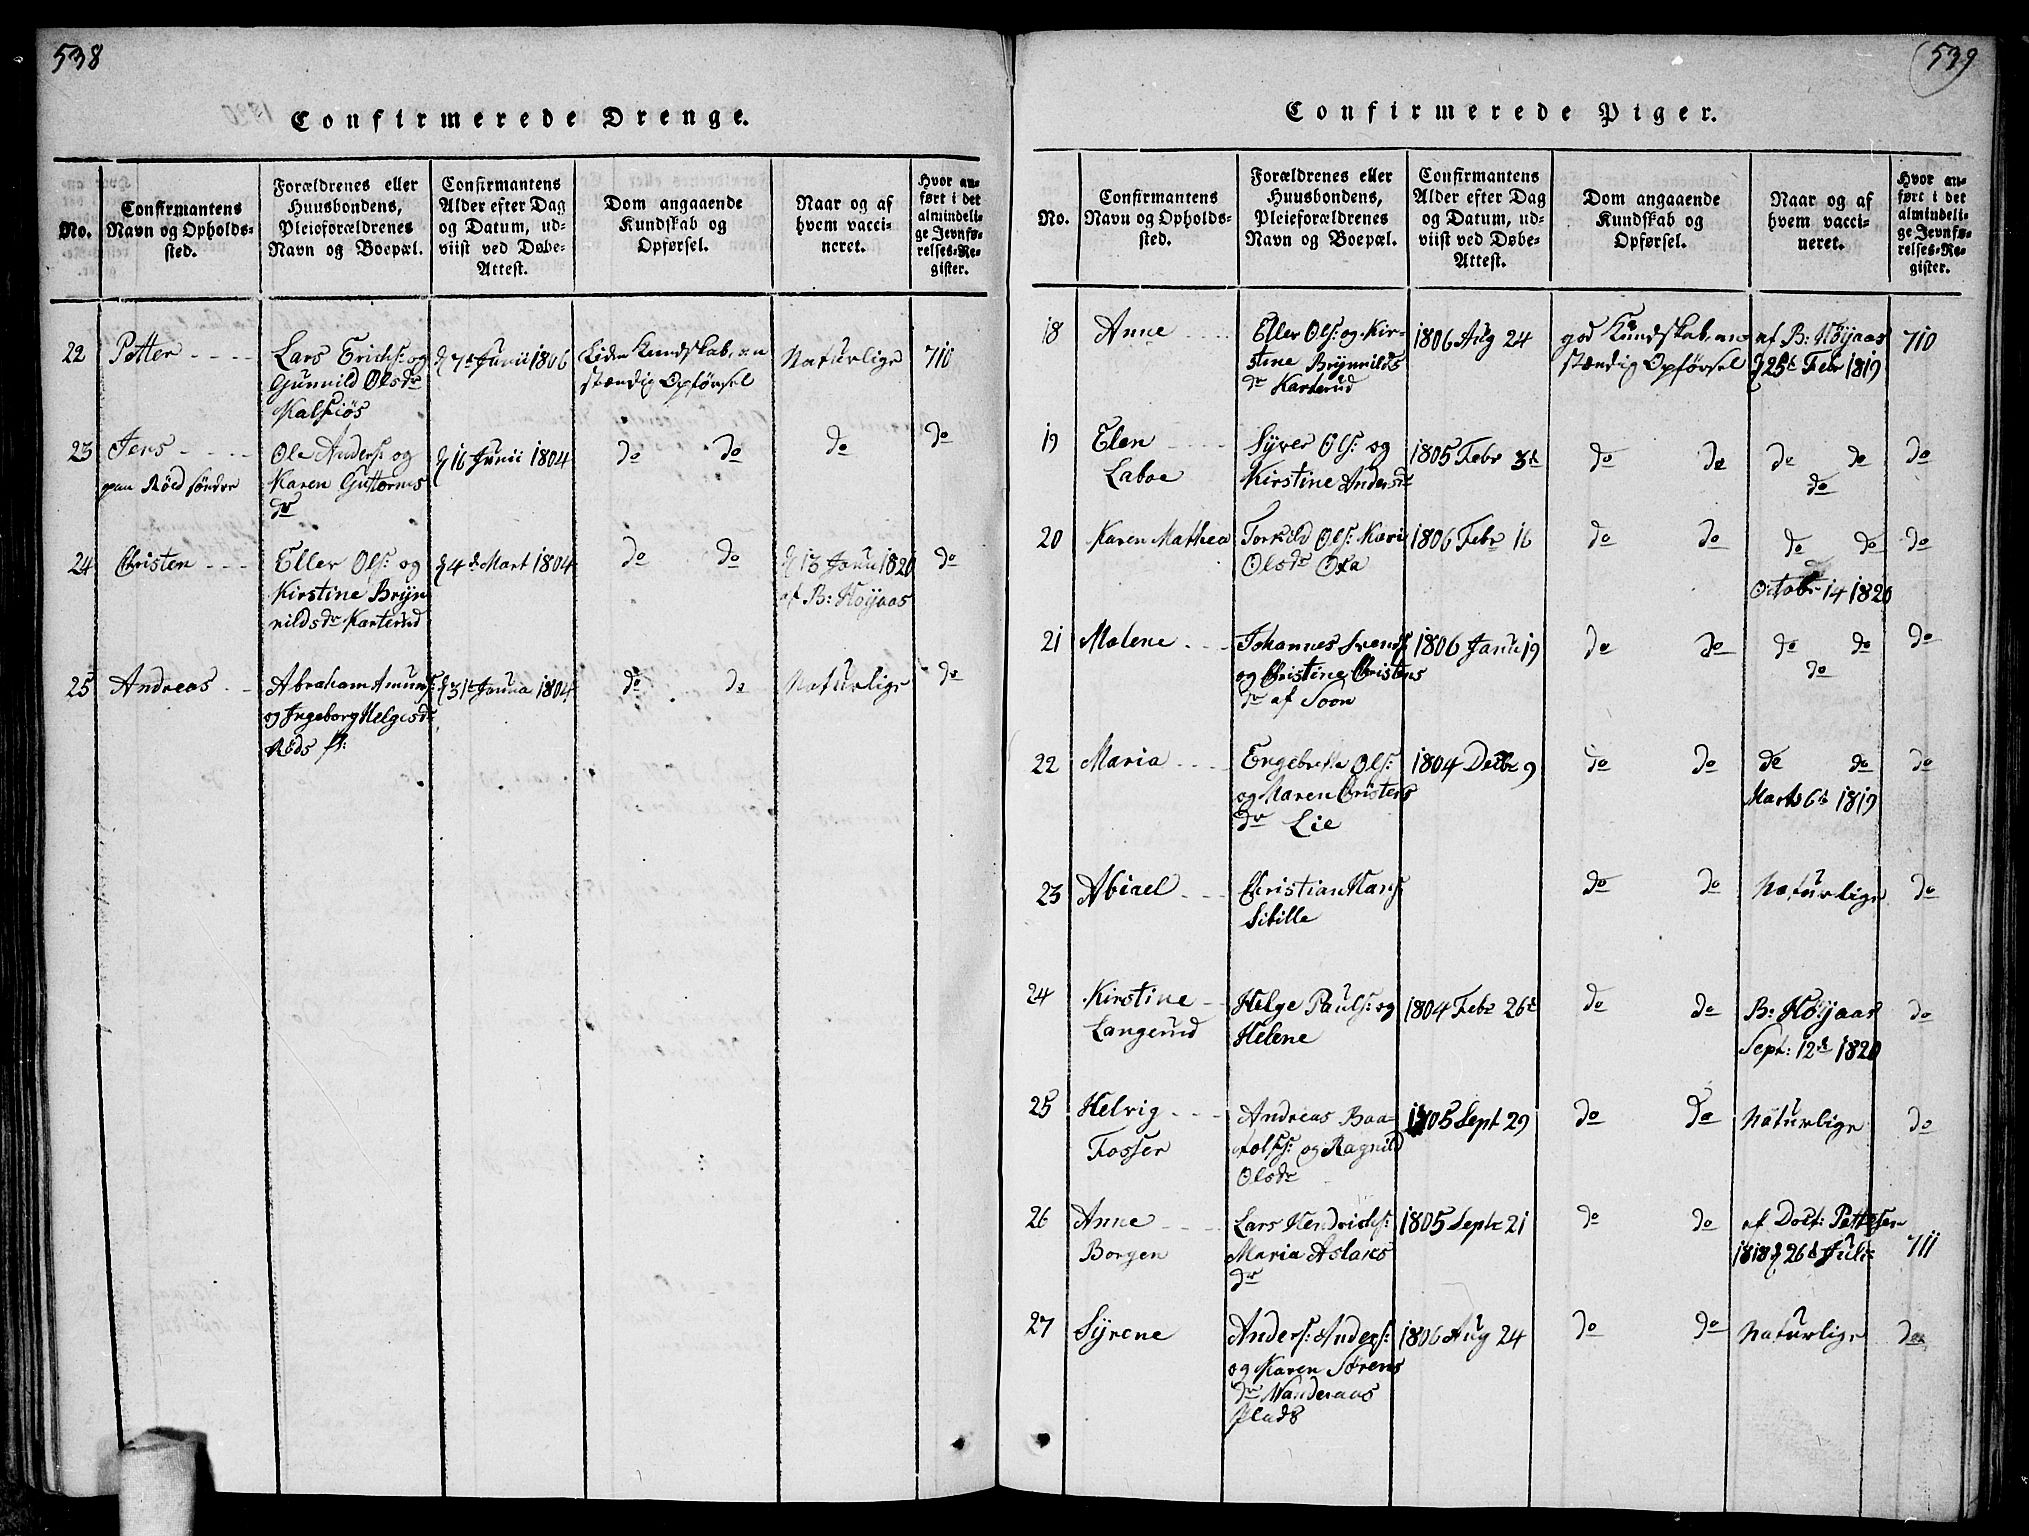 538
Confirmerede Drenge.
No.
Confirmantens
Navn og Opholds-
sted.
Forældrenes eller
Huusbondens,
Pleieforældrenes
Navn og Boepæl.
Confirmantens
Alder efter Dag
og Datum, ud-
viist ved Døbe-
Attest.
Dom angaaende
Kundskab og
Opførsel.
Naar og af
hvem vacci-
neret.
Hvor an-
ført i det
almindeli-
ge Jevnfø-
relses-Re-
gister.
22 Petter Lars Erichs: og d 7de Junii 1806 Liden Kundskab, an Naturlige 710
Gunnild Olsdr stændig Opførsel
Kalsiös
23 Jens Ole Anders: og d 16 Junii 1804 do do do do
paa Röed söndre Karen Guttorms
dr
24 Christen Eller Ols: og d 4de Mart 1804 do do d 13 Janu 1820 do
Kirstine Bryn af B: Höyaas
nildsdr Karterud
25 Andreas Abraham Amunds: d 31te Janua 1804 do do Naturlige do
og Ingeborg Helgesdr
Röds
539
Confirmerede Piger.
No.
Confirmantens
Navn og Opholds-
sted.
Forældrenes eller
Huusbondens,
Pleieforældrenes
Navn og Boepæl.
Confirmantens
Alder efter Dag
og Datum, ud-
viist ved Døbe-
Attest.
Dom angaaende
Kundskab og
Opførsel.
Naar og af
hvem vacci-
neret.
Hvor an-
ført i det
almindeli-
ge Jevnfø-
relses-Re-
gister.
18 Anne Eller Ols: og Kir- 1806 Aug 24 god Kundskab, an af B: Höyaas 710
stine Brynnilds stændig Opförsel d 25de Febr 1819
dr Karterud
19 Elen Syver Ols: og 1805 Febr 3de do do do do do
Laboe Kirstine Andersdr do
20 Karen Mathea Torkild Ols: Kari 1806 Febr 16 do do do do do
Olsdr Oxa
Octobr 14 1820
21 Malene Johannes Svends: 1806 Janu 19 do do do do do
og Christine Christens do
dr af Soon
22 Maria Engebrette Ols: 1804 Decbr 9 do do do do do
og Maren Christens Marts 6te 1819
dr Lie
23 Abiael Christian Hans: do do Naturlige do
Sibille
24 Kirstine Helge Pauls: og 1804 Febr 26de do do B: Höyaas do
Langerud Helene Sept: 12te 1820
25 Helvig Andreas Baa- 1805 Sept 29 do do Naturlige do
Fosser tolfs: og Ragnild
Olsdr
26 Anne Lars Hendrichs: 1805 Septr 21 do do af Doct: Pettersen
Borgen Maria Aslaks 1818 d 26de Juli 711
dr
27 Syrene Anders: Anders: 1806 Aug 24 do do Naturlige do
og Karen Sörens
dr Wanderaas
Plads